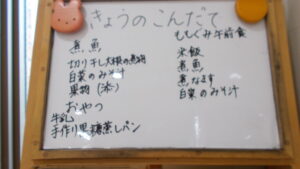 きょうのこんだて
煮魚
切り干し大根の煮物
白菜のみそ汁
果物(添)
おやつ
牛乳
手作り黒糖蒸しパン
ももぐみ午前食
米飯
煮魚
煮なます
白菜のみそ汁